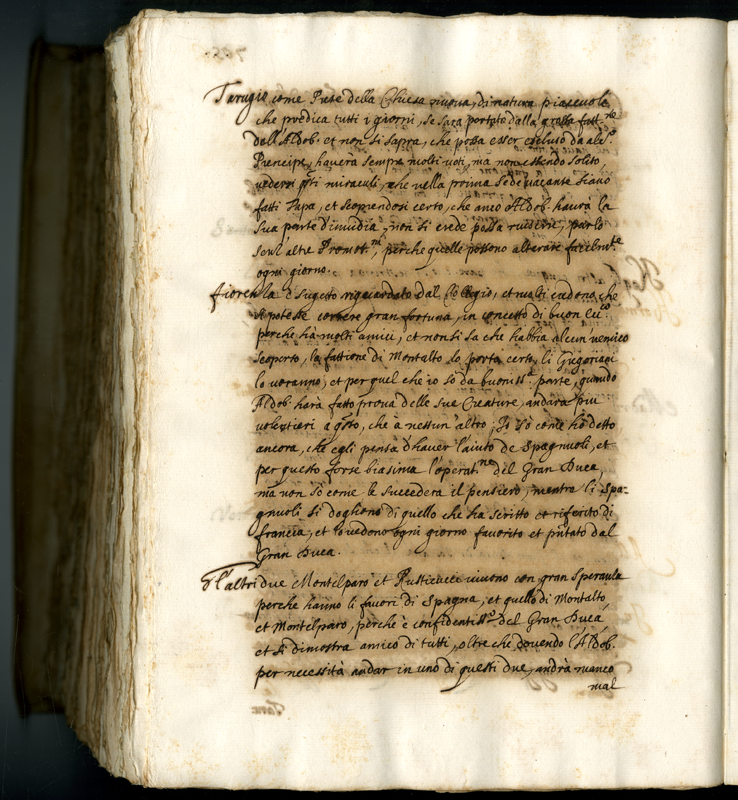 Tarugio come Prete della Chiesa nuova, di natura piacevole
che predica tutti i giorni, se sara portato dalla grossa fatt.ne
dell'Aldob. et non si sappia, che possa esser escluso da alc.o
Prencipe, haverà sempre molti voti, ma non essendo solito
vedersi q.sti miraculi, che nella prima sede vacante siano
fatti Papa, et scoprendosi certo, che anco Aldob. haurà la
sua parte d'invidia, non si crede possa riuscire, per lo
perche quelle possono alterare facilm.te
ogni giorno.
fiorenza è sugetto riguardato dal Collegio, et molti credono che
potesse correre gran fortuna, in concetto di buon
perche hà molti amici, et non si sa che habbia alcun nemico
scoperto, la fattione di Montalto lo porta certo, li Gregoriani
lo voranno, et per quel che io so da buoniss.a parte, quando
Aldob. harà fatto prova delle sue Creature, andarà piu
volentieri a q.sto, che a nessun'altro; Io sò come hò detto
ancora, che egli pensa d'haver l'aiuto de Spagnuoli, et
per questo forse biasima l'operat.ne del Gran Duca,
ma non sò come le succederà il pensiero, mentre li Spa=
gnuoli si dogliono di quello che ha scritto et riferito di
francia, et lo vedono ogni giorno favorito et aiutato dal
Gran Duca.
Gl'altri due Montelparo et Rusticucci vivono con gran speranza
perche hanno li favori di Spagna, et quello di Montalto
et Montelparo, perche è confidentiss.o del Gran Duca,
et si dimostra amico di tutti, oltre che dovendo l'Aldob.
per necessità andar in uno di questi due, andrà manco
mal